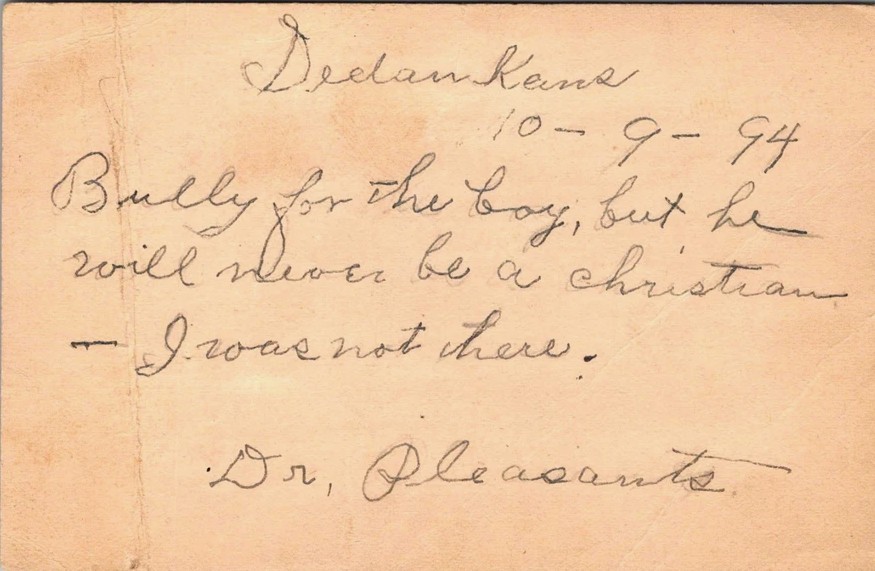 Sedan Kans
10 - 9 - 94
Bully for the boy, but he
will never be a christian
- I was not there.
Dr, Pleasants